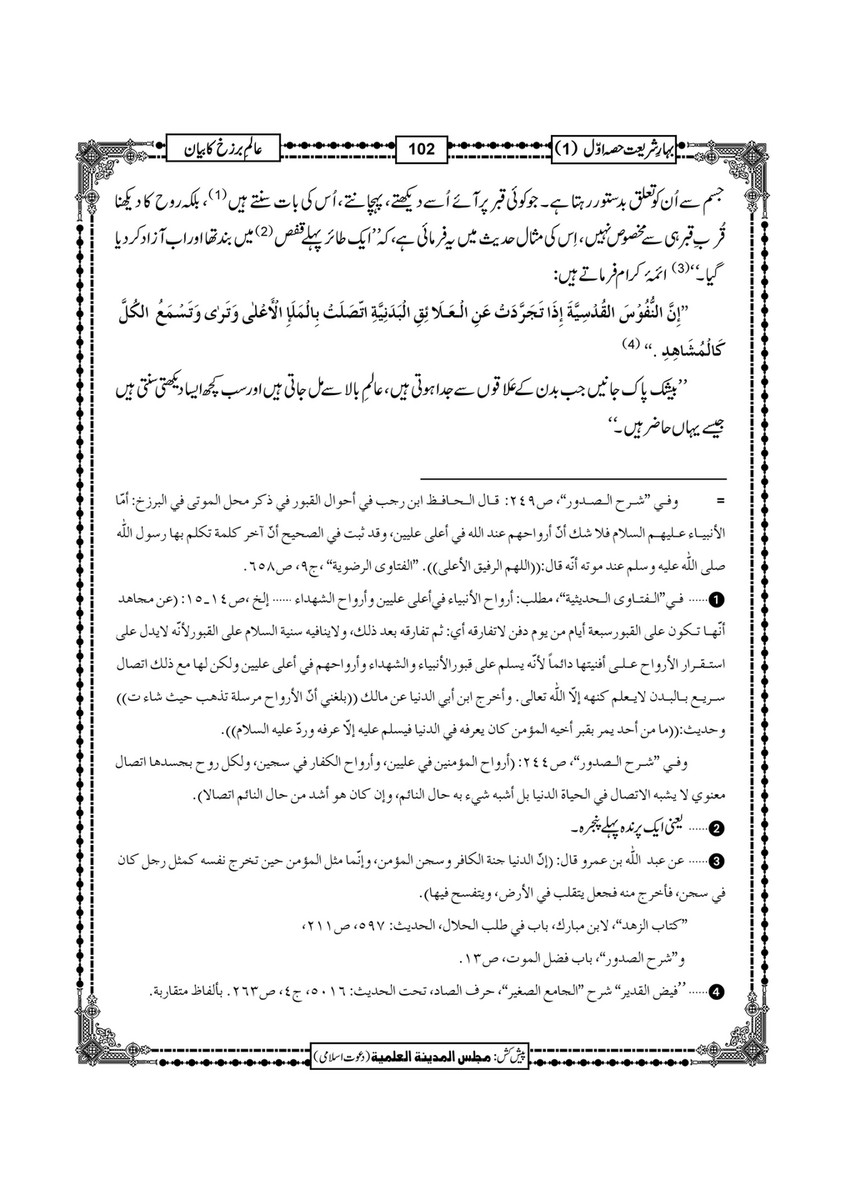 بہارِشریعت حصہ اوّل (1)
102
عالمِ برزخ کا بیان
جسم سے اُن کو تعلق بدستور رہتا ہے۔ جو کوئی قبر پر آئے اُسے دیکھتے، پہچانتے، اُس کی بات سنتے ہیں(1)، بلکہ روح کا دیکھنا
قُربِ قبر ہی سے مخصوص نہیں، اِس کی مثال حدیث میں یہ فرمائی ہے، کہ ’’ایک طائر پہلے قفص(2) میں بند تھا اور اب آزاد کر دیا
گیا۔‘‘(3) ائمۂ کرام فرماتے ہیں:
”إِنَّ النُّفُوْسَ القُدْسِيَّةَ إِذَا تَجَرَّدَتْ عَنِ الْـعَـلَا ئِقِ الْبَدَنِيَّةِ اتَّصَلَتْ بِالْمَلَإِ الْأَعْلٰى وَتَرٰى وَتَسْمَعُ الكُلَّ
كَالْمُشَاهِدِ .“ (4)
’’بیشک پاک جانیں جب بدن کے علاقوں سے جدا ہوتی ہیں، عالمِ بالا سے مل جاتی ہیں اور سب کچھ ایسا دیکھتی سنتی ہیں
جیسے یہاں حاضر ہیں۔‘‘
= وفـي ”شـرح الـصـدور“، ص٢٤٩: قـال الـحـافـظ ابن رجب في أحوال القبور في ذكر محل الموتى في البرزخ: أمّا
الأنبيـاء عـليهـم السلام فلا شك أنّ أرواحهم عند الله في أعلى عليين، وقد ثبت في الصحيح أنّ آخر كلمة تكلم بها رسول اللّه
صلى اللّه عليه وسلم عند موته أنّه قال:((اللهم الرفيق الأعلى)). ”الفتاوى الرضوية“ ،ج٩، ص٦٥٨.
❶...... فـي”الـفتـاوى الـحـديثية“، مطلب: أرواح الأنبياء في أعلى عليين وأرواح الشهداء ...... إلخ ،ص١٤ـ١٥: (عن مجاهد
أنّهـا تـكون على القبورسبعة أيام من يوم دفن لاتفارقه أي: ثم تفارقه بعد ذلك، ولاينافيه سنية السلام على القبورلأنّه لايدل على
استـقـرار الأرواح عـلـى أفنيتها دائماً لأنّه يسلم على قبورالأنبياء والشهداء وأرواحهم في أعلى عليين ولكن لها مع ذلك اتصال
سـريـع بـالبـدن لايـعلم كنهه إلّا اللّه تعالى. وأخرج ابن أبي الدنيا عن مالك ((بلغني أنّ الأرواح مرسلة تذهب حيث شاء ت))
وحديث:((ما من أحد يمر بقبر أخيه المؤمن كان يعرفه في الدنيا فيسلم عليه إلّا عرفه وردّ عليه السلام)).
وفـي ”شـرح الـصـدور“، ص٢٤٤: (أرواح المؤمنين في عليين، وأرواح الكفار في سجين، ولكل روح بجسدها اتصال
معنوي لا يشبه الاتصال في الحياة الدنيا بل أشبه شيء به حال النائم، وإن كان هو أشد من حال النائم اتصالا).
❷...... یعنی ایک پرندہ پہلے پنجرہ۔
❸...... عن عبد اللّٰه بن عمرو قال: (إنّ الدنيا جنة الكافر وسجن المؤمن، وإنّما مثل المؤمن حين تخرج نفسه كمثل رجل كان
في سجن، فأخرج منه فجعل يتقلب في الأرض، ويتفسح فيها).
”كتاب الزهد“، لابن مبارك، باب في طلب الحلال، الحديث: ٥٩٧، ص٢١١،
و”شرح الصدور“، باب فضل الموت، ص١٣.
❹...... ’’فيض القدير“ شرح ”الجامع الصغير“، حرف الصاد، تحت الحديث: ٥٠١٦، ج٤، ص٢٦٣. بألفاظ متقاربة.
پیش کش: مجلس المدينة العلمية (دعوت اسلامی)